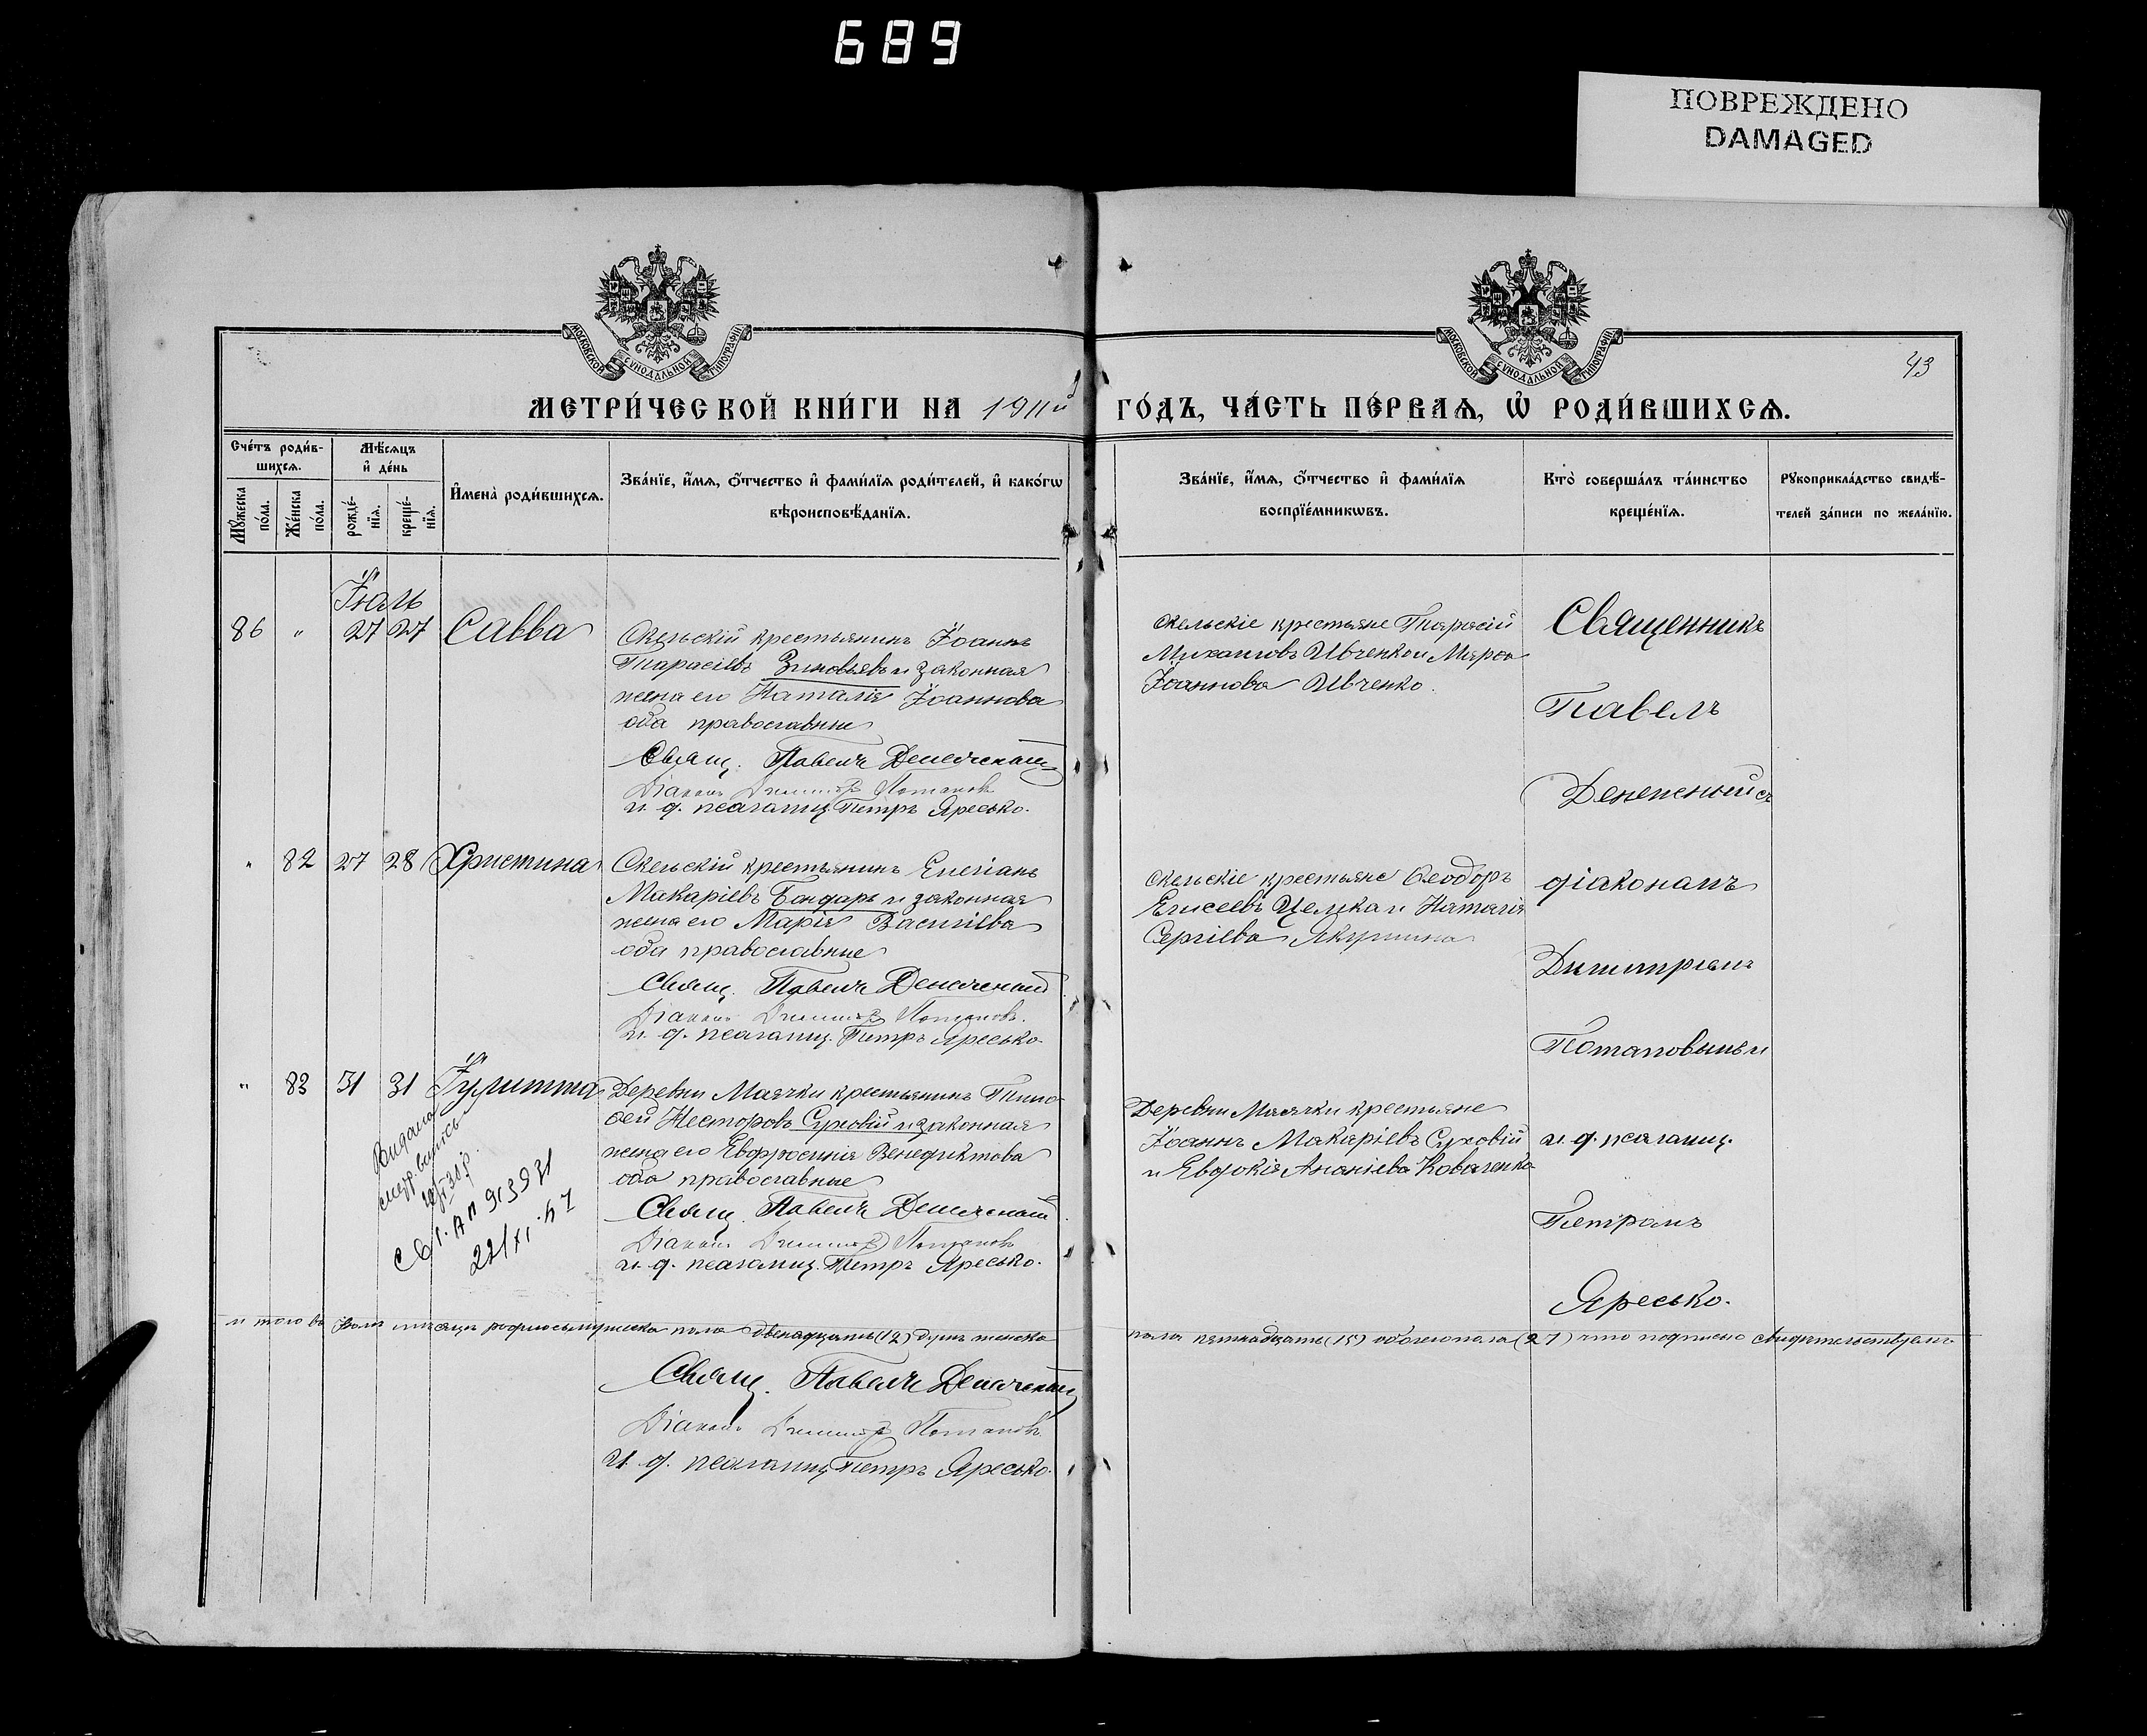 689
ПОВРЕЖДЕНО
DAMAGED
МОСКОВСКОЙ СѴНОДАЛЬНОЙ ТИПОГРАФІИ
МОСКОВСКОЙ СѴНОДАЛЬНОЙ ТИПОГРАФІИ
43
МЕТРИ́ЧЕСКОЙ КНИ́ГИ НА 1911й ГО́ДЪ, ЧА́СТЬ ПЕ́РВАѦ, Ѡ҆ РОДИ́ВШИХСѦ.
Сче́тъ роди́в-
шихсѧ.
Мꙋ́жеска
по́ла.
Же́нска
по́ла.
Мѣ́сѧцъ
и҆ де́нь
рожде́-
нїѧ.
креще́-
нїѧ.
И҆мена̀ роди́вшихсѧ.
Зва́нїе, и҆́мѧ, ѻ҆́тчество и҆ фами́лїѧ роди́телей, и҆ како́гѡ
вѣроисповѣ́данїѧ.
Зва́нїе, и҆́мѧ, ѻ҆́тчество и҆ фами́лїѧ
воспрїе́мникѡвъ.
Кто̀ соверша́лъ та́инство
креще́нїѧ.
Рꙋкоприкла́дство свидѣ́-
телей за́писи по жела́нїю.
Іюль
86 " 27 27 Савва
Скельскій крестьянинъ Іоаннъ
Тарасіевъ Зиновьевъ и законная
жена его Наталія Іоаннова
оба православные
Свящ. Павелъ
Діаконъ Димитр Потаповъ
и. д. псаломщ. Петръ Яресько.
Скельскіе крестьяне Тарасій
Михаиловъ Ивченко и Марѳа
Іоаннова Ивченко.
Священникъ
Павелъ
съ
діакономъ
Димитріемъ
Потаповымъ и
и. д. псаломщ.
Петромъ
Яресько.
" 82 27 28 Христина
Скельскій крестьянинъ
Макаріевъ Бондарь и законная
жена его Марія Василіева
оба православные
Свящ. Павелъ
Діаконъ Димитр Потаповъ.
и. д. псаломщ. Петръ Яресько.
Скельскіе крестьяне Ѳеодоръ
Елисеевъ и Наталія
Сергіева
" 83 31 31 Іулитта
Деревни Маячки крестьянинъ Тимо-
ѳей Несторовъ Суховій и законная
жена его Евфросинія Венедиктова
оба православные
Свящ. Павелъ
Діаконъ Димитр Потаповъ
и. д. псаломщ. Петръ Яресько.
Деревни Маячки крестьяне
Іоаннъ Макаріевъ Суховій
и Евдокія Ананіева Коваленко
Видана
913931
22/XI-57
Итого въ Іюлѣ мѣсяцѣ родилось мужеска пола двенадцать (12) душъ женска пола пятнадцать (15) обоего пола (27) что подписью свидетельствуемъ.
Свящ. Павелъ
Діаконъ Димитр Потаповъ.
И. д. псаломщ. Петръ Яресько.